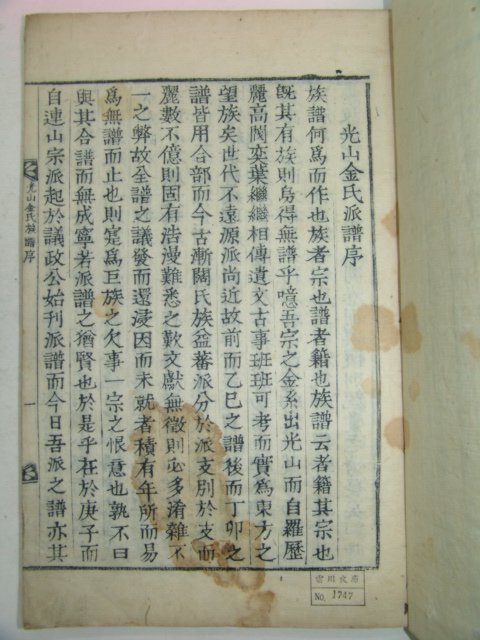 光山金氏派譜序
族譜何爲而作也族者宗也譜者籍也族譜云者籍其宗也
旣其有族則烏得無譜乎噫吾宗之金系出光山而自羅歷
麗高閥奕葉繼繼相傳遺文古事班班可考而實爲東方之
望族矣世代不遠源派尚近故前而乙巳之譜後而丁卯之
譜皆用合部而今古漸闊氏族益蕃派分於派支別於支而
麗數不億則固有浩漫難悉之歎文獻無徵則必多淆雜不
一之弊故至譜之議發而還浸因而未就者積有年所而易
爲無譜而止也則寔爲巨族之欠事一宗之恨意也孰不曰
與其合譜而無成寧若派譜之猶賢也於是乎在於庚子而
自連山宗派起於議政公始刊派譜而今日吾派之譜亦其
光山金氏派譜序
一
No. 1747